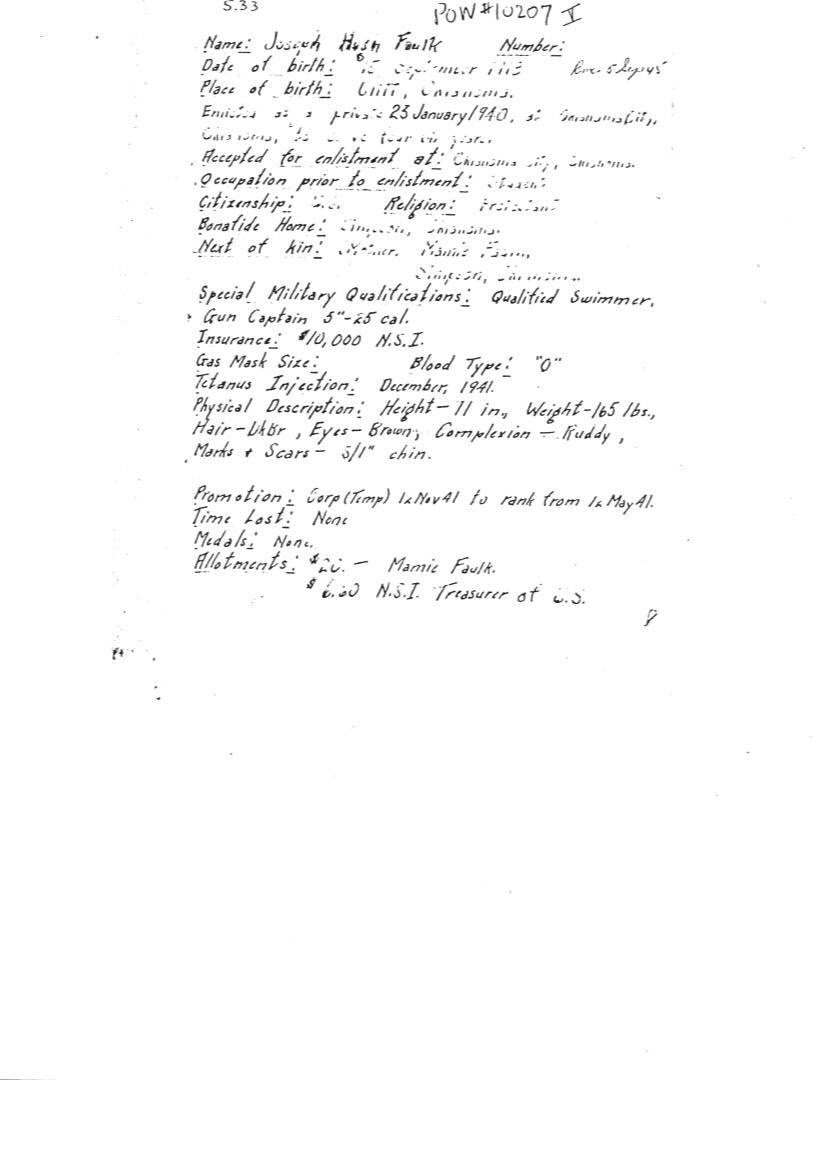 5.33
POW #10207 I
Name: Joseph Hugh Faulk Number:
Date of birth: 5 Sep 45
Place of birth: Oklahoma.
as a private 23 January 1940, at
Oklahoma, to four
Accepted for enlistment at: Oklahoma City, Oklahoma.
Occupation prior to enlistment: Student
Citizenship: U.S. Religion: Protestant
Bonafide Home: Simpson, Oklahoma.
Next of kin: Mother, Mamie Faulk,
Simpson, Oklahoma.
Special Military Qualifications: Qualified Swimmer,
Gun Captain 5"-25 cal.
Insurance: $10,000 N.S.I.
Gas Mask Size: Blood Type: "O"
Tetanus Injection: December, 1941.
Physical Description: Height - 71 in., Weight - 165 lbs.,
Hair - DkBr, Eyes - Brown, Complexion - Ruddy,
Marks + Scars - S/1" chin.
Promotion: Corp (Temp) Nov 41 to rank from May 41.
Time Lost: None
Medals: None.
Allotments: $20. - Mamie Faulk.
N.S.I. Treasurer of U.S.